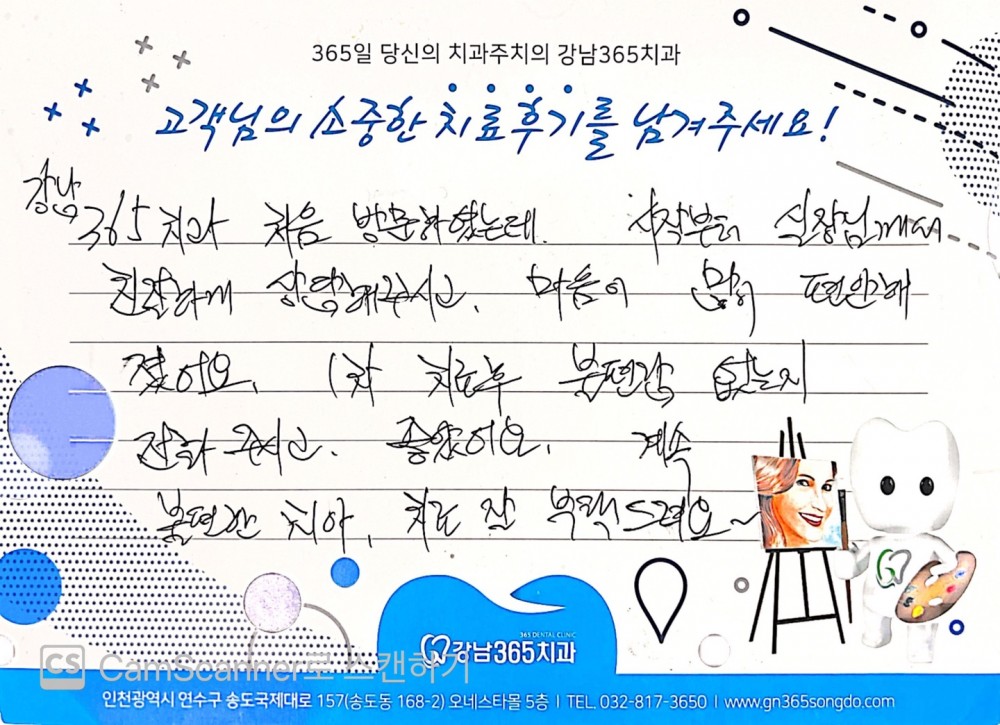 365일 당신의 치과주치의 강남365치과
고객님의 소중한 치료후기를 남겨주세요!
강남
365치과 처음 방문하였는데. 시작부터 실장님께서
친절하게 상담해주시고, 마음이 많이 편안해
졌어요. 1차 치료후 불편감 없는지
전화 주시고. 좋았어요. 계속
불편한 치아, 치료 잘 부탁드려요~
365 DENTAL CLINIC
강남365치과
CS CamScanner로 스캔하기
인천광역시 연수구 송도국제대로 157(송도동 168-2) 오네스타몰 5층 | TEL. 032-817-3650 | www.gn365songdo.com